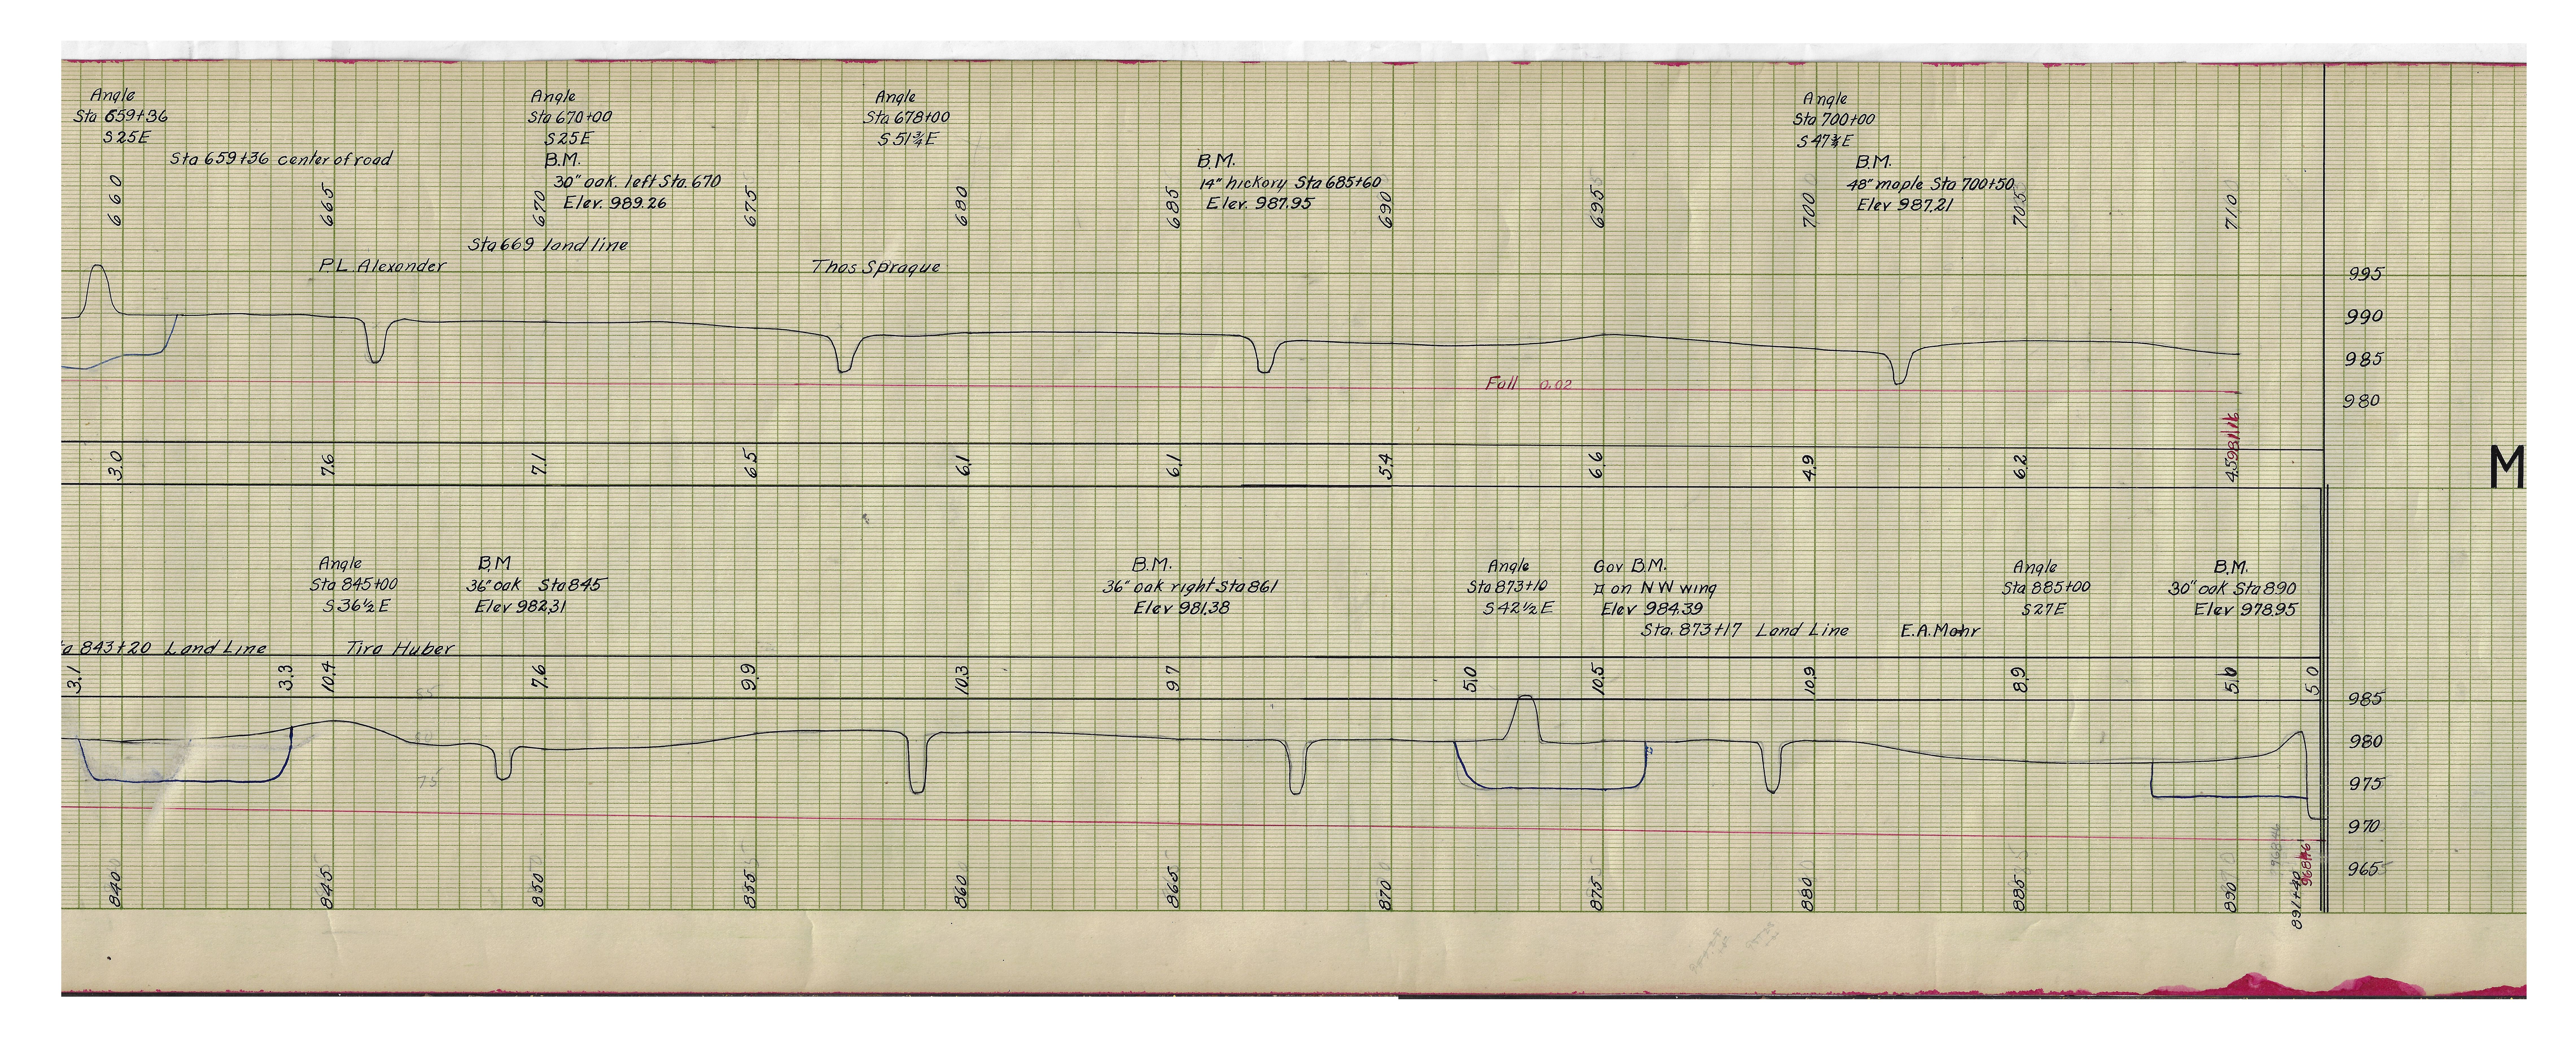 Angle
Sta 659+36
S25E
Sta 659+36 center of road
Angle
Sta 670+00
S25E
B.M.
30" oak. left Sta. 670
Elev. 989.26
Angle
Sta 678+00
S 51¾ E
B.M.
14" hickory Sta 685+60
Elev. 987.95
Angle
Sta 700+00
S 47¾ E
B.M.
48" maple Sta 700+50
Elev 987.21
660 665 670 675 680 685 690 695 700 705 710
Sta 669 land line
P.L. Alexander
Thos Sprague
995
990
985
980
Fall 0.02
3.0 7.6 7.1 6.5 6.1 6.1 5.4 6.6 4.9 6.2 4.5
981.16
M
Angle
Sta 845+00
S 36½ E
B.M
36" oak Sta 845
Elev 982.31
B.M.
36" oak right Sta 861
Elev 981.38
Angle
Sta 873+10
S 42½ E
Gov B.M.
¤ on NW wing
Elev 984.39
Sta. 873+17 Land Line
E.A. Mohr
Angle
Sta 885+00
S27E
B.M.
30" oak Sta 890
Elev 978.95
ta 843+20 Land Line
Tira Huber
3.1 3.3 10.4 7.6 9.9 10.3 9.7 5.0 10.5 10.9 8.9 5.0 5.0
85
80
75
985
980
975
970
965
968.46
840 845 850 855 860 865 870 875 880 885 890 891+40